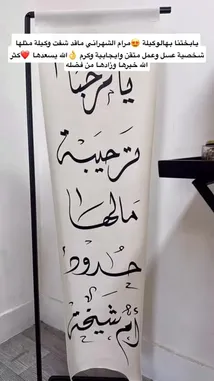 يابختنا بهالوكيلة 😍مرام الشهراني ماقد شفت وكيلة مثلها
شخصية عسل وعمل متقن وايجابية وكرم 👌الله يسعدها ❤️كثر
الله خيرها وزادها من فضله
يا مرحبا
ترحيبة
مالها
حدود
أم شيخة